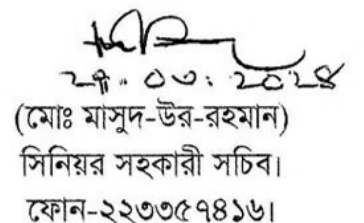 (মোঃ মাসুদ-উর-রহমান)
সিনিয়র সহকারী সচিব।
ফোন-২২৩৩৫৭৪১৬।